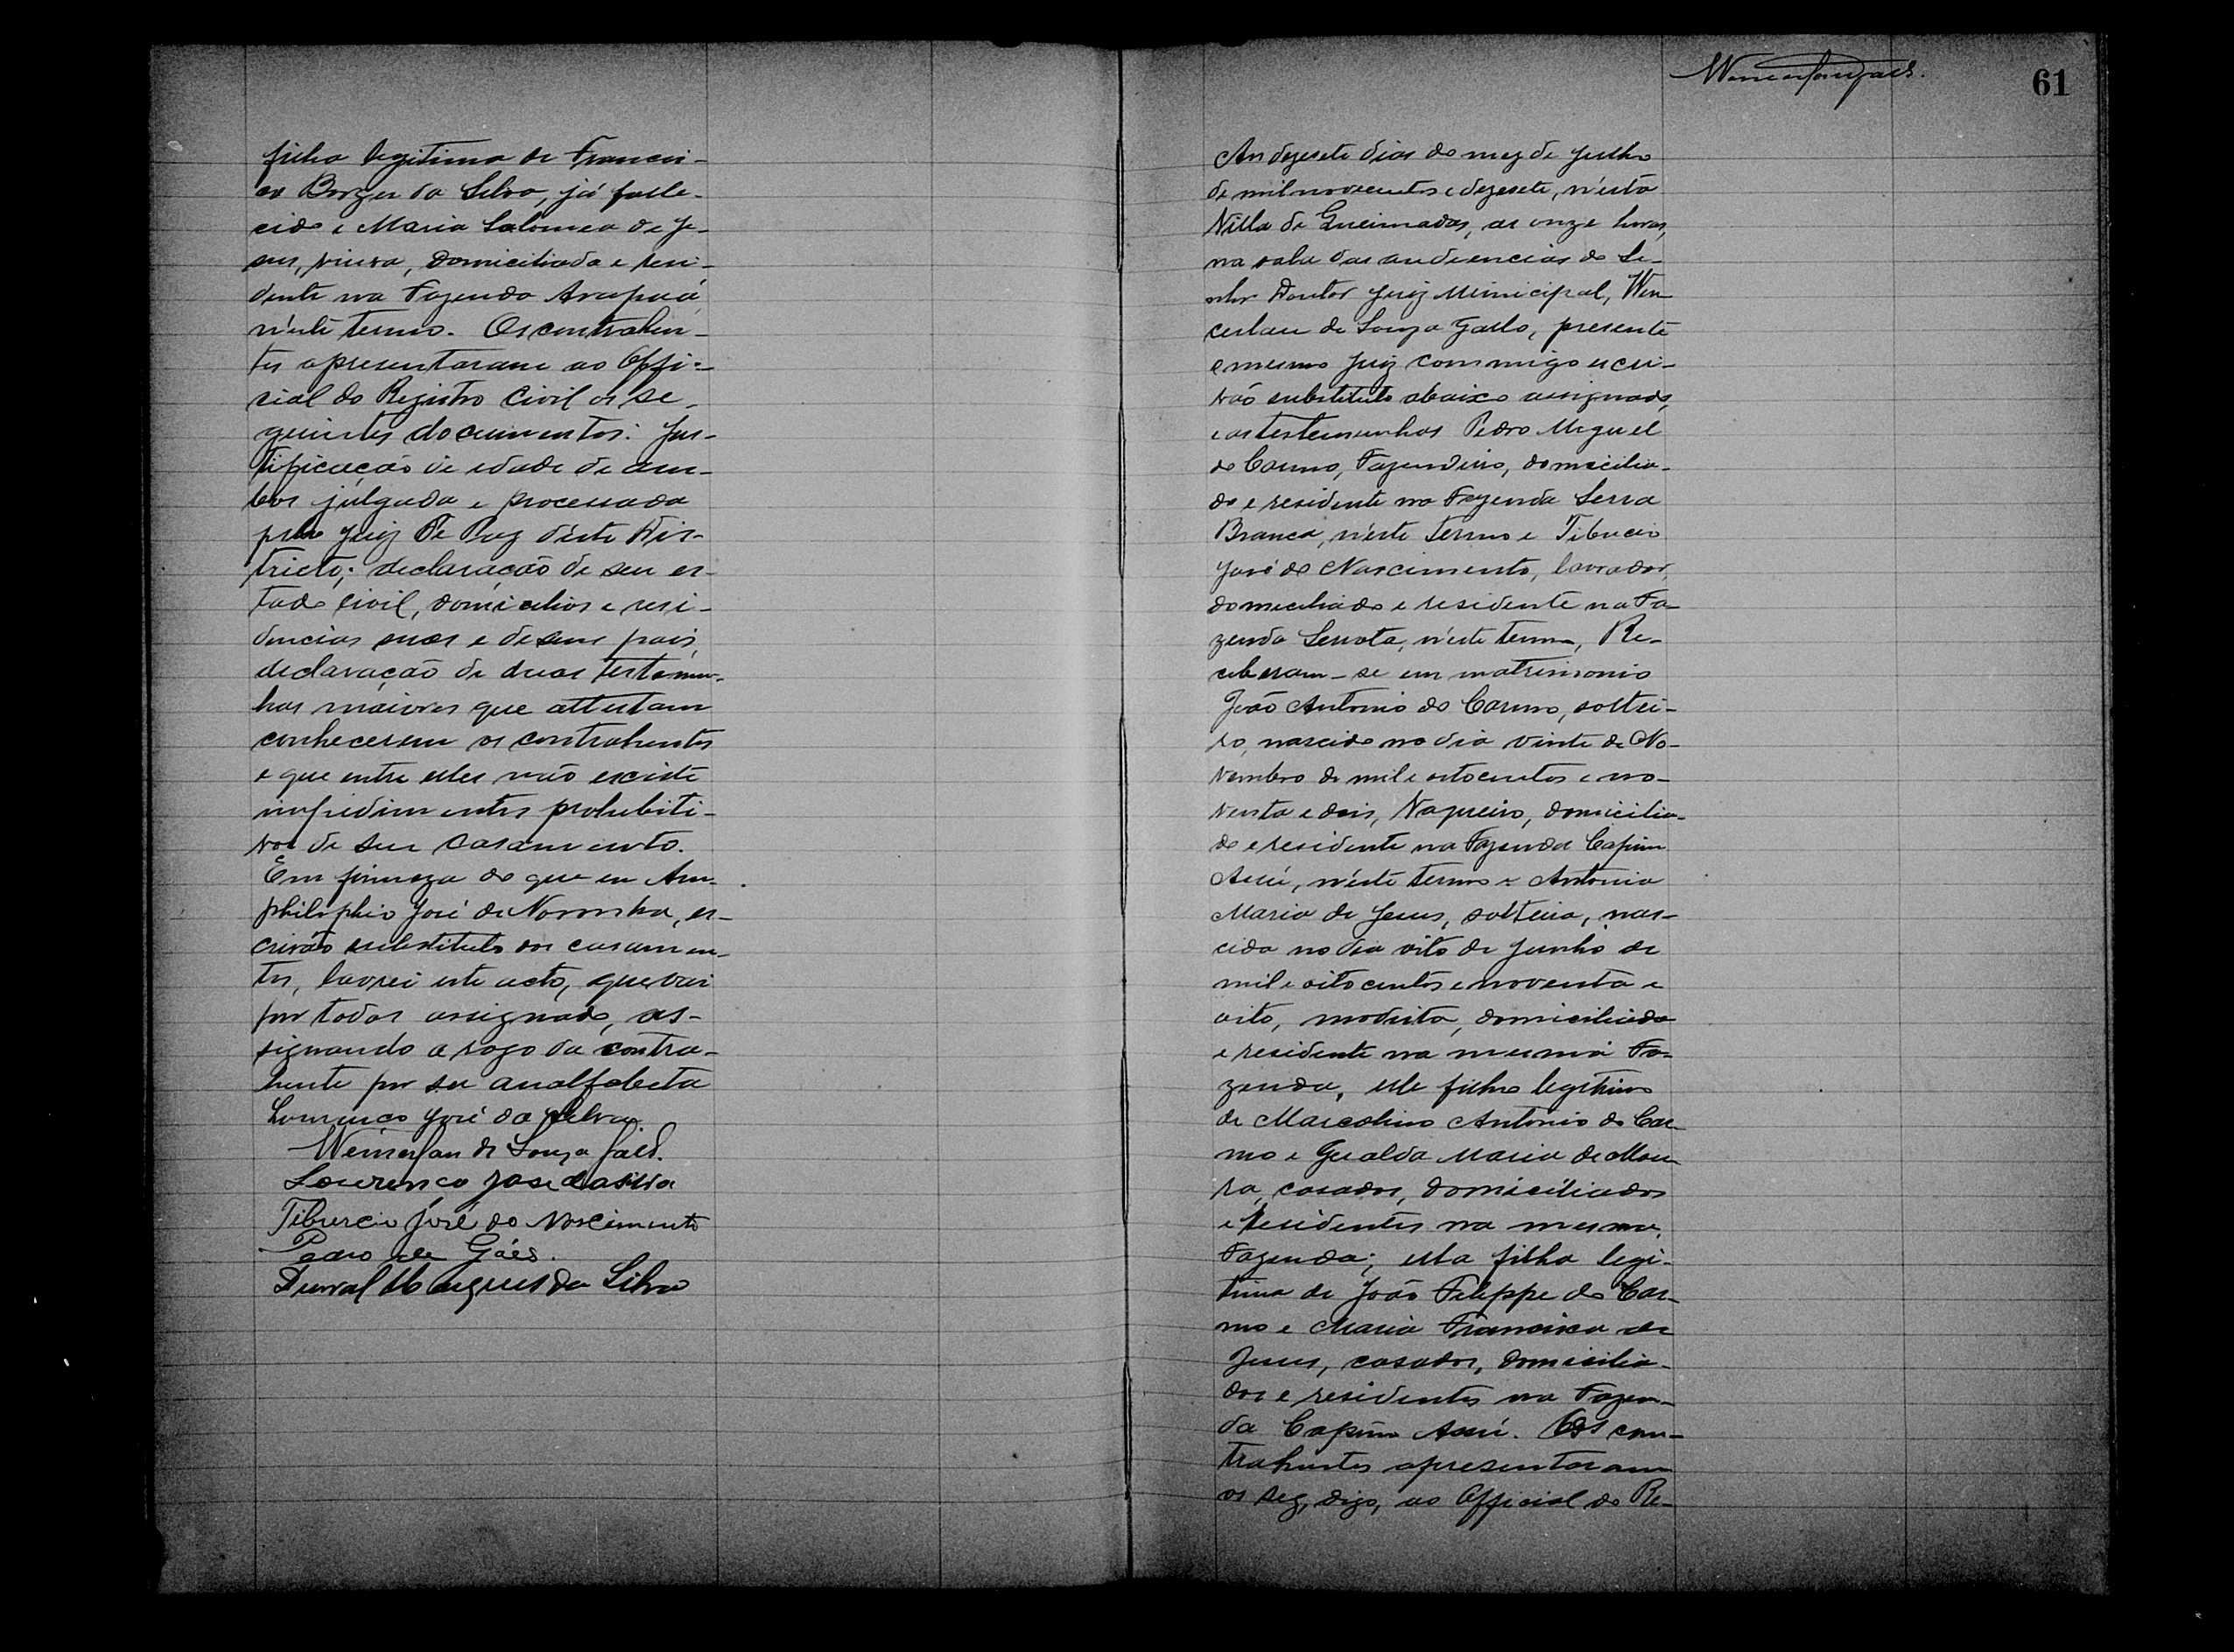 filha legitima de Francis-
co Borges da Silva, já falle-
cido e Maria Salomea de Je-
sus, viuva, domiciliada e resi-
dente na Fazenda Arapuá
n'este termo. Os contrahen-
tes apresentaram ao Offi-
cial do Registro Civil os se-
guintes documentos: Jus-
tificação de edade de am-
bos julgada e processada
pelo Juiz de Paz d'este Dis-
tricto; declaração de seu es-
tado civil, domicilios e resi-
dencias suas e de seus pais,
declaração de duas testemun-
has maiores que attestam
conhecerem os contrahentes
e que entre elles não existe
impedimentos prohibiti-
vos de seu casamento.
Em firmeza do que eu Am-
philophio José de Noronha, es-
crivão substituto dos casamen-
tos, lavrei este acto, que vai
por todos assignado, as-
signando a rogo da contra-
hente por ser analfabeta
Lourenço José da Silva.
Wenceslau de Souza Gallo.
Lourenço Jose da Silva
Tiburcio José do Nascimento
Pedro de Góes.
Durval Marques da Silva
61
Aos dezesete dias do mez de Julho
de mil novecentos e dezesete, n'esta
Villa de Queimadas, as onze horas,
na sala das audiencias do Se-
nhor Doutor Juiz Municipal, Wen
ceslau de Souza Gallo, presente
o mesmo Juiz commigo escri-
vão substituto abaixo assignado,
e as testemunhas Pedro Miguel
do Carmo, Fazendeiro, domicilia-
do e residente na Fazenda Serra
Branca, n'este termo e Tiburcio
José do Nascimento, lavrador,
domiciliado e residente na Fa-
zenda Serrota, n'este termo, Re-
ceberam-se em matrimonio
João Antonio do Carmo, soltei-
ro, nascido no dia vinte de No-
vembro de mil e oitocentos e no-
venta e dois, Vaqueiro, domicilia-
do e residente na Fazenda Capim
Assú, n'este termo e Antonia
Maria de Jesus, solteira, nas-
cida no dia oito de Junho de
mil e oitocentos e noventa e
oito, modista, domiciliada
e residente na mesma Fa-
zenda, elle filho legitimo
de Marcolino Antonio do Car-
mo e Geralda Maria de Mou-
ra, casados, domiciliados
e residentes na mesma
Fazenda; ella filha legi-
tima de João Filippe do Car-
mo e Maria Francisca de
Jesus, casados, domicilia-
dos e residentes na Fazen-
da Capim Assú. Os con-
trahentes apresentaram
os seg, digo, ao Official do Re-